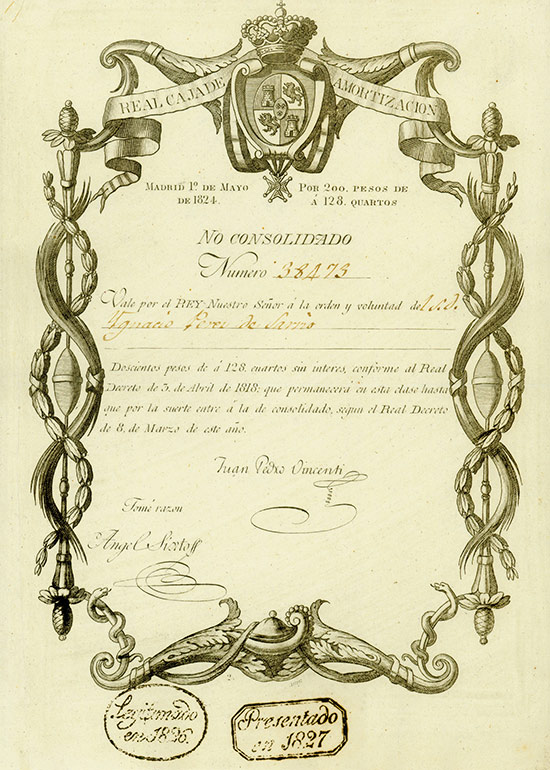 REAL CAJA DE AMORTIZACION
MADRID 1º DE MAYO DE 1824.
POR 200. PESOS DE Á 128. QUARTOS
NO CONSOLIDADO
Numero 38473
Vale por el REY Nuestro Señor á la orden y voluntad del S.D.
Ygnacio Perez de Sarrio
Doscientos pesos de á 128 cuartos sin interes, conforme al Real
Decreto de 3. de Abril de 1818; que permanecerá en esta clase hasta
que por la suerte entre á la de consolidado, segun el Real Decreto
de 8. de Marzo de este año.
Juan Pedro Vincenti
Tomé razon
Angel Sixto
Legitimado
en 1826.
Presentado
en 1827